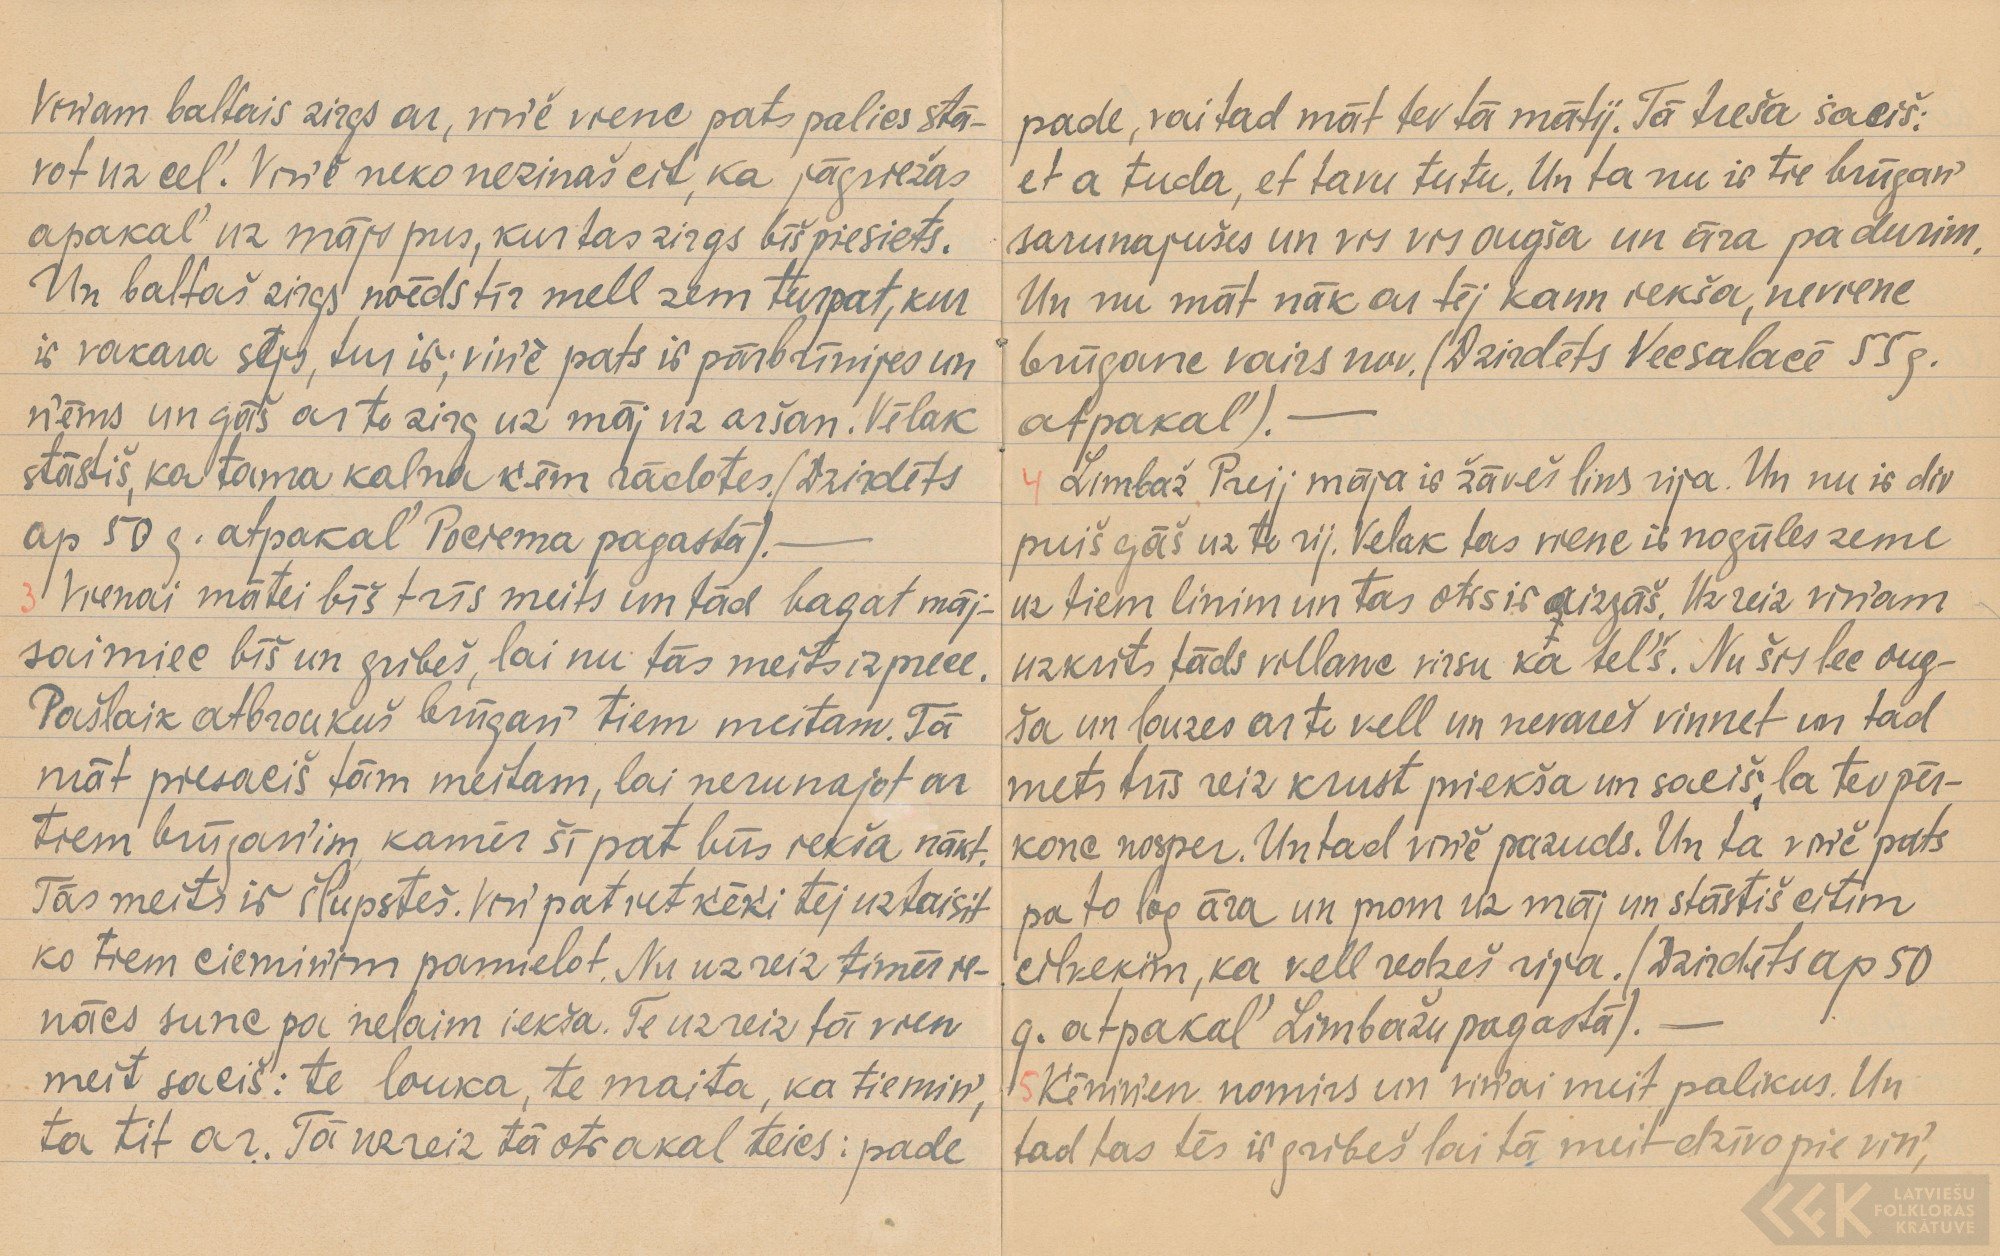 Viņam baltais zirgs ar, viņē viene pats palics stā-
vot uz ceļ. Viņē neko nezinaš cit, ka jāgriežas
apakaļ uz mājs pus, kur tas zirgs bīš piesiets.
Un baltaš zirgs noēds tīr mell zem turpat, kur
ir vakara sējs, tur ir; viņē pats ir pārbrīnijes un
ņēms un gāš ar to zirg uz māj uz aršan. Vēlak
stāstiš, ka tama kalna ķēm rādotes. (Dzirdēts
ap 50 g. atpakaļ Pociema pagastā). —
3 Vienai mātei bīš trīs meits un tād bagat māj-
saimiec bīš un gribeš, lai nu tās meits izprece.
Pašlaik atbroukuš brūgaņ tiem meitam. Tā
māt piesaciš tām meitam, lai nerunajot ar
tiem brūgaņim, kamēr šī pat būs iekša nākt.
Tās meits ir šļupsteš. Viņ pat iet ķēķi tēj uztaisit
ko tiem ciemiņim pamielot. Nu uzreiz timēr ie-
nācs sunc pa nelaim iekša. Te uzreiz tā vien
meit saciš: te louka, te maita, ka tiemiņ,
ta tit ar. Tā uzreiz tā otr akal teics: pade
pade, vai tad māt tev tā mātij. Tā treša šaciš:
et a tuda, et tavu tutu. Un ta nu ir tie brūgaņ
sarunajušes un vis vis ougša un āra pa durim.
Un nu māt nāk ar tēj kann iekša, neviene
brūgane vairs nov. (Dzirdēts Vecsalacē 55 g.
atpakaļ). —
4 Limbaž Preij māja ir žāveš lins rija. Un nu ir div
puiš gāš uz to rij. Velak tas viene ir nogūles zeme
uz tiem linim un tas otrs ir aizgāš. Uzreiz viņam
uzkrits tāds villane virsu kā teļš. Nu šis lec oug-
ša un louzes ar to vell un nevareš vinnet un tad
mets trīs reiz krust priekša un saciš; la tev pēr-
konc nosper. Un tad viņē pazuds. Un ta viņē pats
pa to log āra un prom uz māj un stāstiš citim
cilvekim, ka vell redzeš rija. (Dzirdēts ap 50
g. atpakaļ Limbažu pagastā). —
5 Ķēniņen nomirs un viņai meit palikus. Un
tad tas tēs ir gribeš lai tā meit dzīvo pie viņ,
LATVIEŠU
FOLKLORAS
KRĀTUVE